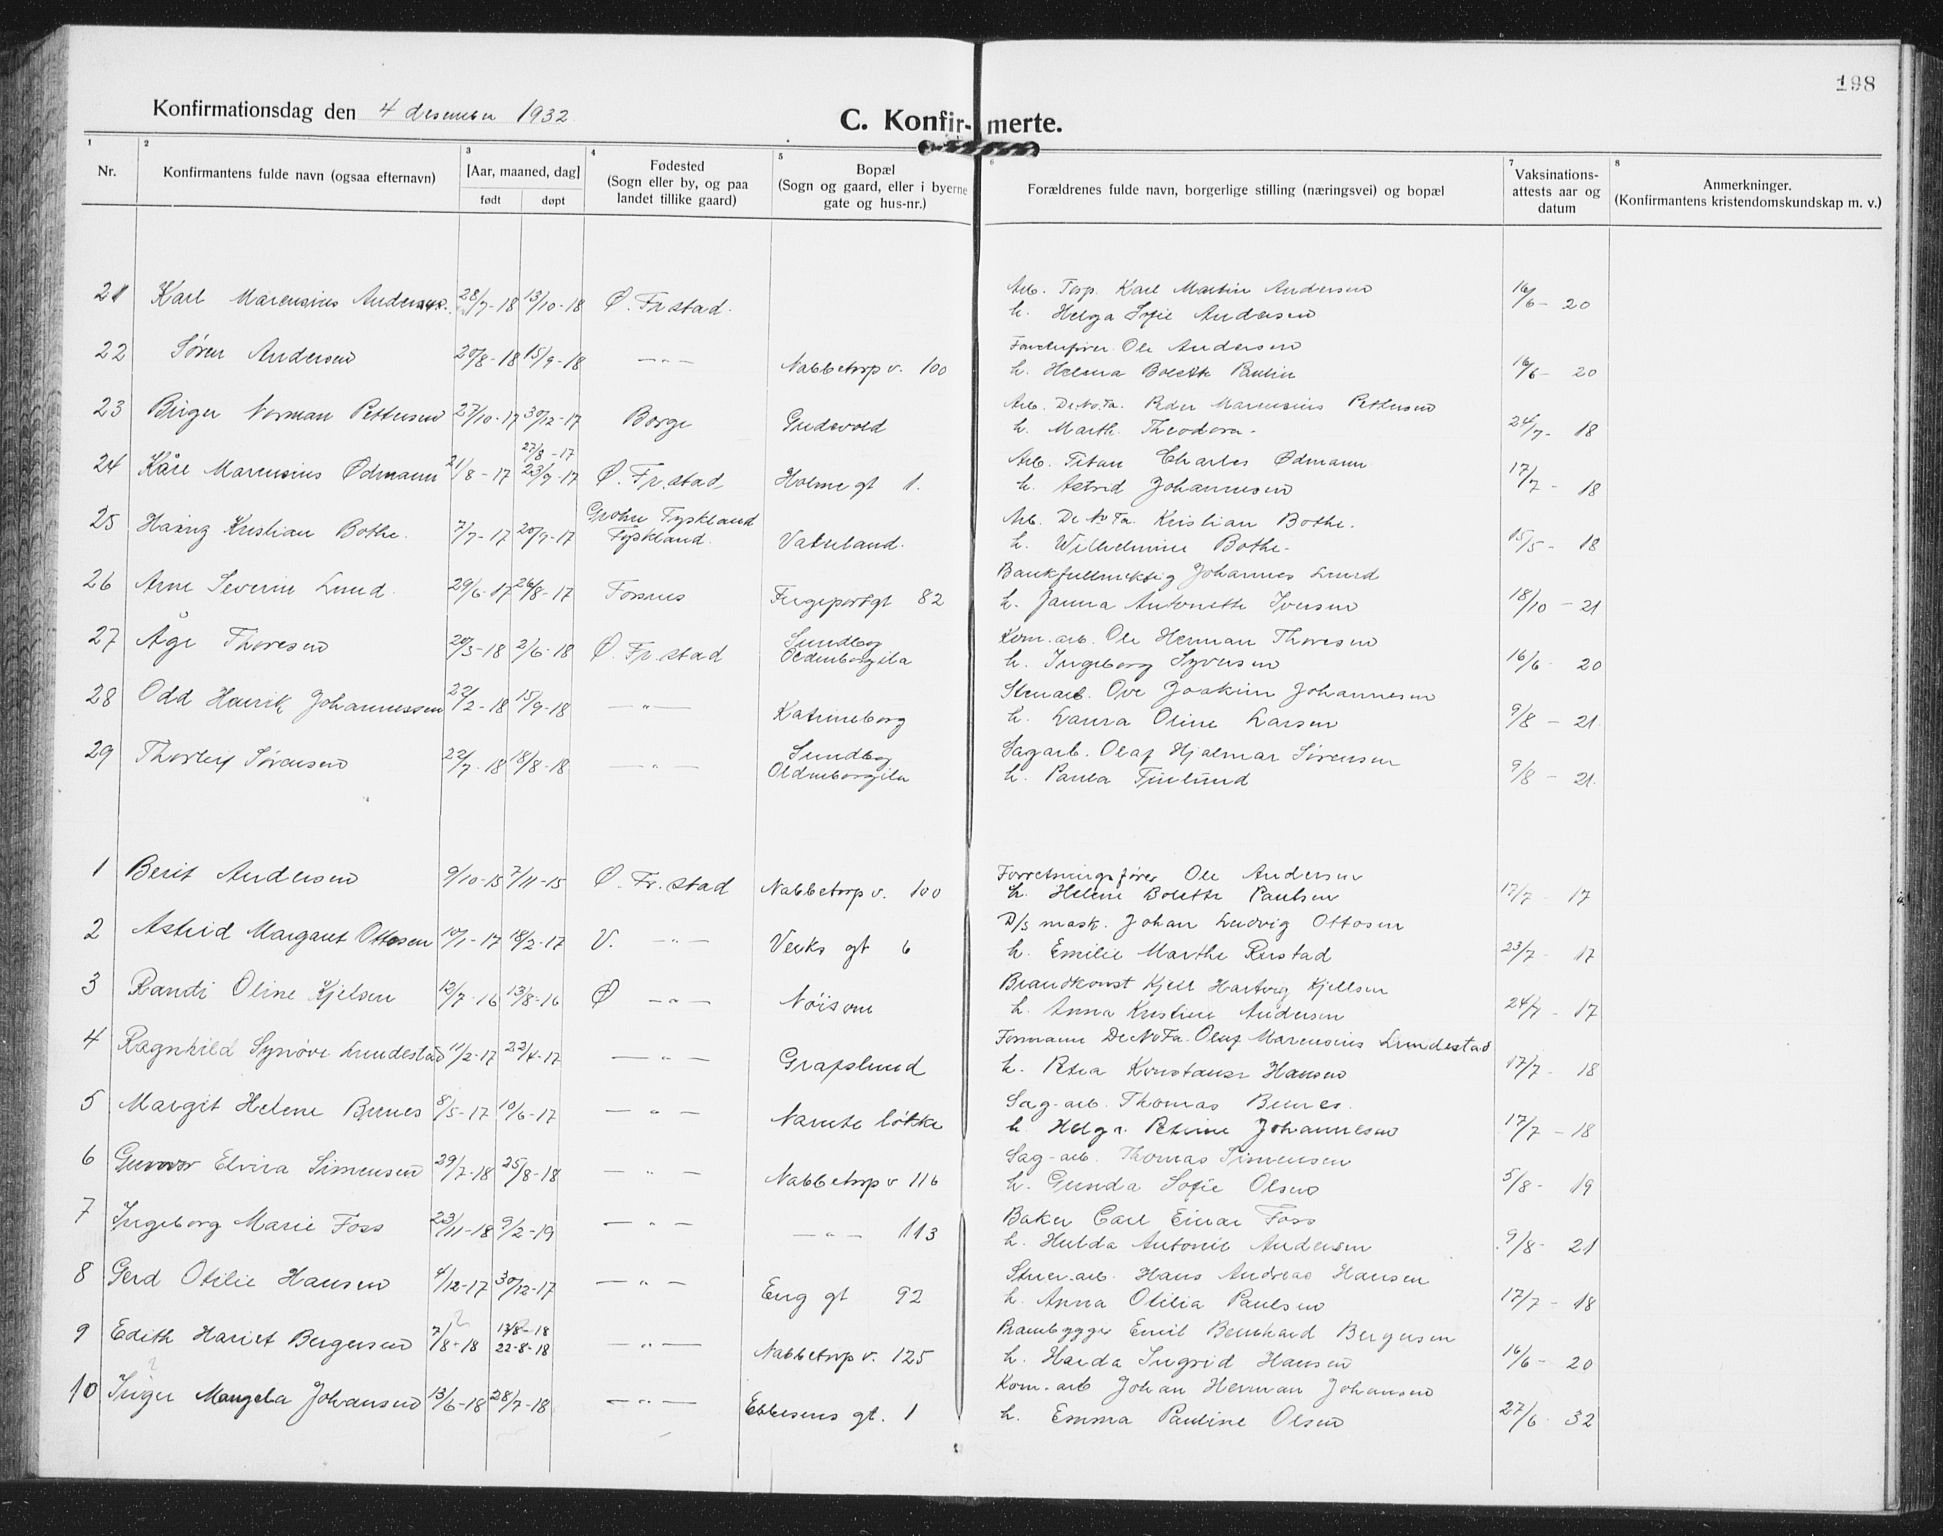 198
Konfirmationsdag den 4 desember 1932
C. Konfir- merte.
1 2 3 4 5 6 7 8
Nr. Konfirmantens fulde navn (ogsaa efternavn) [Aar, maaned, dag] født døpt Fødested (Sogn eller by, og paa landet tillike gaard) Bopæl (Sogn og gaard, eller i byerne gate og hus-nr.) Forældrenes fulde navn, borgerlige stilling (næringsvei) og bopæl Vaksinations-attests aar og datum Anmerkninger. (Konfirmantens kristendomskundskap m. v.)
21 Karl Marensius Andersen. 28/7-18 13/10-18 Ø. Fr.stad. Arb. Torp. Karl Martin Andersen 16/6- 20
h. Helga Sofie Andersen
22 Søren Andersen 20/8-18 15/9-18 —„— Nabbetorp v. 100 Ole Andersen 16/6- 20
h. Helena Bolette
23 Birger Norman Pettersen 27/10-17 30/12-17 Borge Gudevold Arb. De.No.Fa. Peder Marensius Pettersen 24/7- 18
h. Marth. Theodora-
27/8-17
24 Kåre Marensius Ødmann 21/8-17 23/9-17 Ø. Fr.stad, Holme gt 1. Arb. Titan Charles Ødmann 17/7- 18
h. Astrid Johannesen
25 Haing Kristian Bothe. 7/7-17 20/7-17 Grohn Tyskland Vaterland. Arb. De No Fa. Kristian Bothe. 15/5- 18
Tyskland. h. Wilhelmine Bothe-
26 Arne Severin Lund. 29/6-17 26/8-17 Forsnes Fergeportgt 82 Bankfullmektig Johannes Lund 18/10-21
h. Janna Antonette Iversen
27 Åge Thoresen 20/3-18 2/6-18 Ø. Fr.stad Sundløg Kom. arb. Ole Herman Thoresen 16/6- 20
Oldenborgila h. Ingeborg Syversen
28 Odd Henrik Johannessen 22/2-18 15/9-18 —„— Katrineborg Stenarb. Ove Joakim Johannesen 9/8- 21.
h. Laura Oline Larsen
29 Thorleif Sørensen 22/7-18 18/8-18 —„— Sundløg Sagarb. Olaf Hjalmar Sørensen 9/8- 21.
Oldenborgila h. Paula Tjulund
1 Berit Andersen 9/10-15 7/11-15 Ø. Fr.stad Nabbetorp v. 100 Forretningsfører Ole Andersen 17/7- 17
h. Helene Bolette Paulsen
2 Astrid Margaret Ottosen 10/1-17 18/2-17 V. —„— Verks gt 6 D/s mask. Johan Ludvig Ottosen 23/7- 17
h. Emilie Marthe Rustad
3 Randi Oline Kjelsen 12/7-16 13/8-16 Ø —„— Nøisom Brandkonst Kjell Hartvig Kjellsen 24/7- 17
h. Anna Kristine Andersen
4 Ragnhild Synøve Lundestad 11/2-17 22/4-17 —„— Grafslund Formann De No Fa. Olaf Marensius Lundestad 17/7- 18
h. Petra Konstanse Hansen
5 Margit Helene Bernes 8/5-17 10/6-17 —„— Narnte løkke Sag-arb. Thomas Bernes. 17/7-18
h. Helga Petrine Johannesen
6 Gunvor Elvira Simensen 29/7-18 25/8-18 —„— Nabbetorp v 116 Sag-arb. Thomas Simensen 5/8- 19
h. Gunda Sofie Olsen
7 Ingeborg Marie Foss 23/11-18 9/2-19 —„— —„— 113 Baker Carl Einar Foss 9/8- 21
h. Hulda Antonie Andersen
8 Gerd Otilie Hansen 4/12-17 30/12-17 —„— Eng gt 92 Stuer.arb. Hans Andreas Hansen 17/7-18
h. Anna Otilia Paulsen
9 Edith Hariet Bergersen 7/8-18 13/8-18 22-8-18 —„— Nabbetorp v. 125 Prambygger Emil Bernhard Bergersen 16/6- 20
h. Harda Ingrid Hansen
10 Inger Mangela Johansen 13/6-18 28/7-18 —„— Ebbesens gt. 1 Kom. arb Johan Herman Johansen 27/6- 32
h. Emma Pauline Olsen